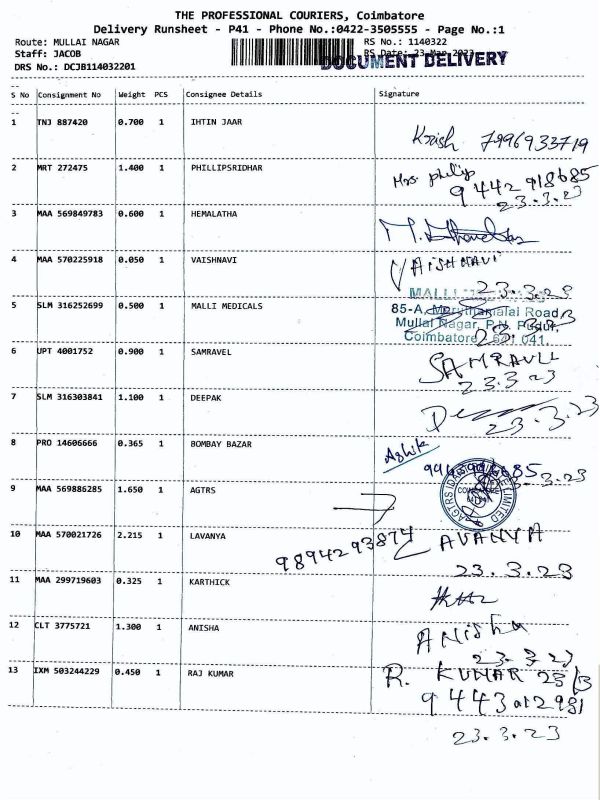 THE PROFESSIONAL COURIERS, Coimbatore
Delivery Runsheet - P41 - Phone No.:0422-3505555 - Page No.:1
Route: MULLAI NAGAR RS No.: 1140322
Staff: JACOB RS Date: 23-Mar-2023
DOCUMENT DELIVERY
DRS No.: DCJB114032201
S No Consignment No Weight PCS Consignee Details Signature
1 TNJ 887420 0.700 1 IHTIN JAAR
Krish 7996933719
2 MRT 272475 1.400 1 PHILLIPSRIDHAR
Mrs. philip
9442918685
23.3.23
3 MAA 569849783 0.600 1 HEMALATHA
4 MAA 570225918 0.050 1 VAISHNAVI
VAISHNAVI
23.3.23
5 SLM 316252699 0.500 1 MALLI MEDICALS
MALLI
85-A, Maruthamalai Road
Mullai Nagar, P.N. Pudur,
Coimbatore - 641 041.
23.3.23
6 UPT 4001752 0.900 1 SAMRAVEL
SAMRAVLL
23.3.23
7 SLM 316303841 1.100 1 DEEPAK
23.3.23
8 PRO 14606666 0.365 1 BOMBAY BAZAR
Ashik
9 MAA 569886285 1.650 1 AGTRS
AGTRS LIMITED
10 MAA 570021726 2.215 1 LAVANYA
9894293874 LAVANYA
23.3.23
11 MAA 299719603 0.325 1 KARTHICK
12 CLT 3775721 1.300 1 ANISHA
ANisha
23.3.23
13 IXM 503244229 0.450 1 RAJ KUMAR
R. KUMAR 23/3
23.3.23